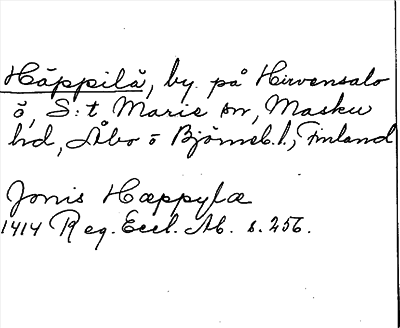 Häppilä, by. på Hirvensalo
ö, S:t Marie sn, Masku
hd, Åbo o Björneb. l., Finland
Jonis Hæppylæ
1414 Reg. Eccl. Ab. s. 256.